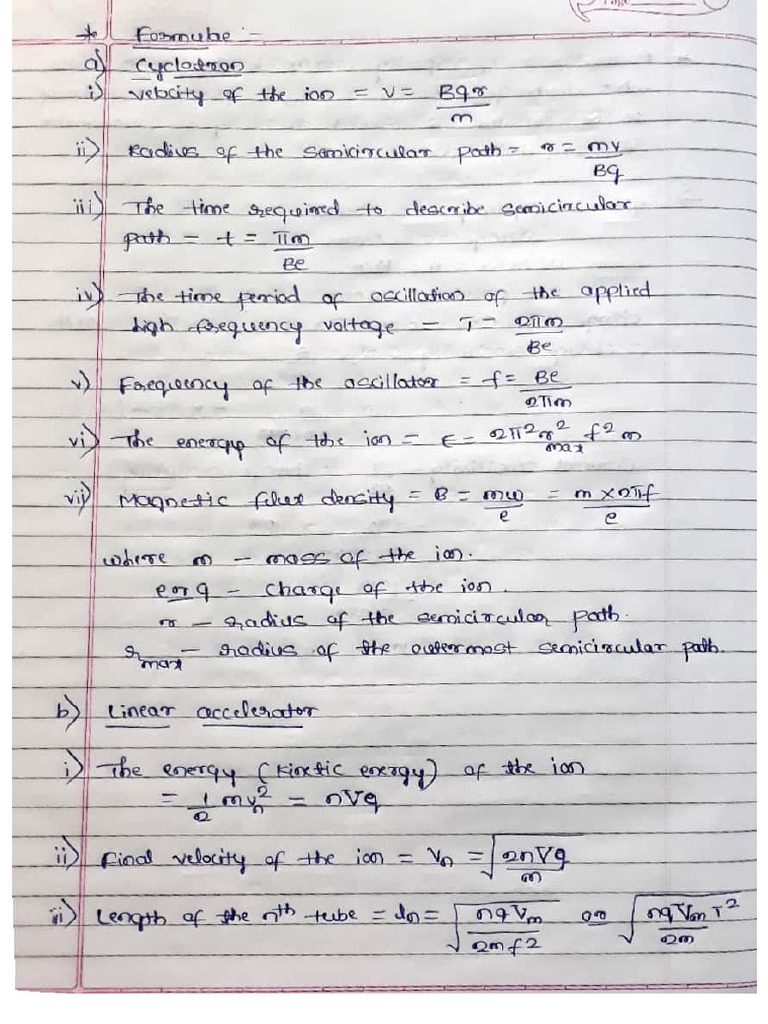 * Formulae :-
a) Cyclotron
i) velocity of the ion = v = Bqr/m
ii) Radius of the semicircular path = r = mv/Bq
iii) The time required to describe semicircular
path = t = πm/Be
iv) The time period of oscillation of the applied
high frequency voltage = T = 2πm/Be
v) Frequency of the oscillator = f = Be/2πm
vi) The energy of the ion = E = 2π²r²max f²m
vii) Magnetic flux density = B = mω/e = m×2πf/e
where m - mass of the ion.
e or q - charge of the ion.
r - radius of the semicircular path.
rmax - radius of the outermost semicircular path.
b) Linear accelerator
i) The energy (kinetic energy) of the ion
= 1/2 mvn² = nVq
ii) Final velocity of the ion = Vn = √(2nVq/m)
iii) Length of the nth tube = ln = √(nqVm/2mf²) or √(nqVmT²/2m)